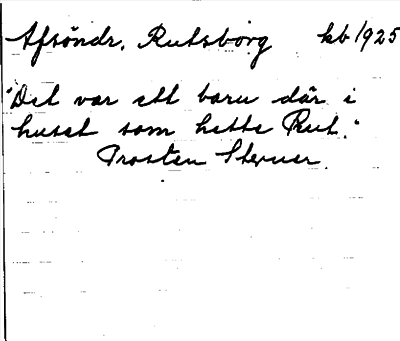 Afsöndr. Rutsborg kb 1925
"Det var ett barn där i
huset som hette Rut."
Prosten Sterner.